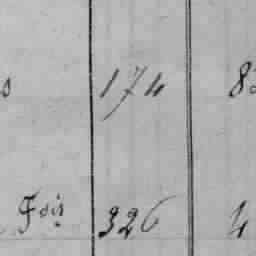 174
Fois 326 4